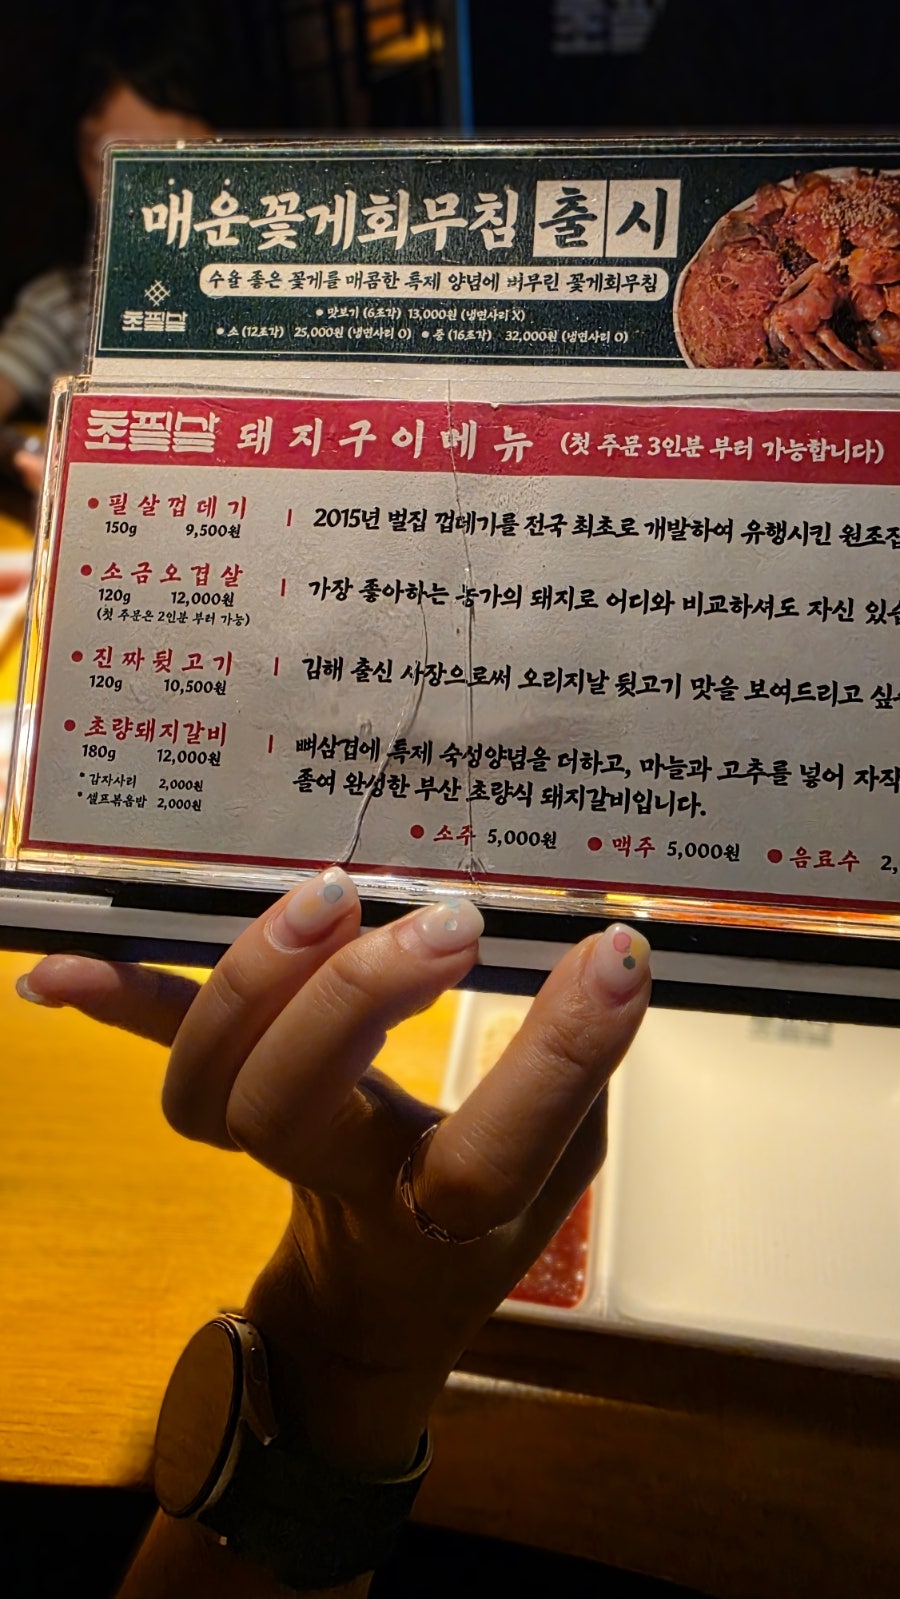 매운꽃게회무침 출시
수율 좋은 꽃게를 매콤한 특제 양념에 버무린 꽃게회무침
초필살
• 맛보기 (6조각) 13,000원 (냉면사리 X)
• 소 (12조각) 25,000원 (냉면사리 O) • 중 (16조각) 32,000원 (냉면사리 O)
초필살 돼지구이메뉴 (첫 주문 3인분 부터 가능합니다)
• 필살껍데기 | 2015년 벌집 껍데기를 전국 최초로 개발하여 유행시킨 원조집
150g 9,500원
• 소금오겹살 | 가장 좋아하는 농가의 돼지로 어디와 비교하셔도 자신
120g 12,000원
(첫 주문은 2인분 부터 가능)
• 진짜뒷고기 | 김해 출신 사장으로써 오리지날 뒷고기 맛을 보여드리고
120g 10,500원
• 초량돼지갈비 | 뼈삼겹에 특제 숙성양념을 더하고, 마늘과 고추를 넣어 자작
180g 12,000원 졸여 완성한 부산 초량식 돼지갈비입니다.
* 감자사리 2,000원
* 셀프볶음밥 2,000원
• 소주 5,000원 • 맥주 5,000원 • 음료수 2,